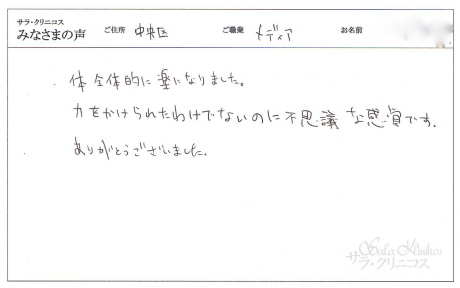 サラ・クリニコス
みなさまの声 ご住所 中央区 ご職業 メディア お名前
体全体的に楽になりました。
力をかけられたわけでないのに不思議な感覚です。
ありがとうございました。
Sala Klinikos
サラ・クリニコス